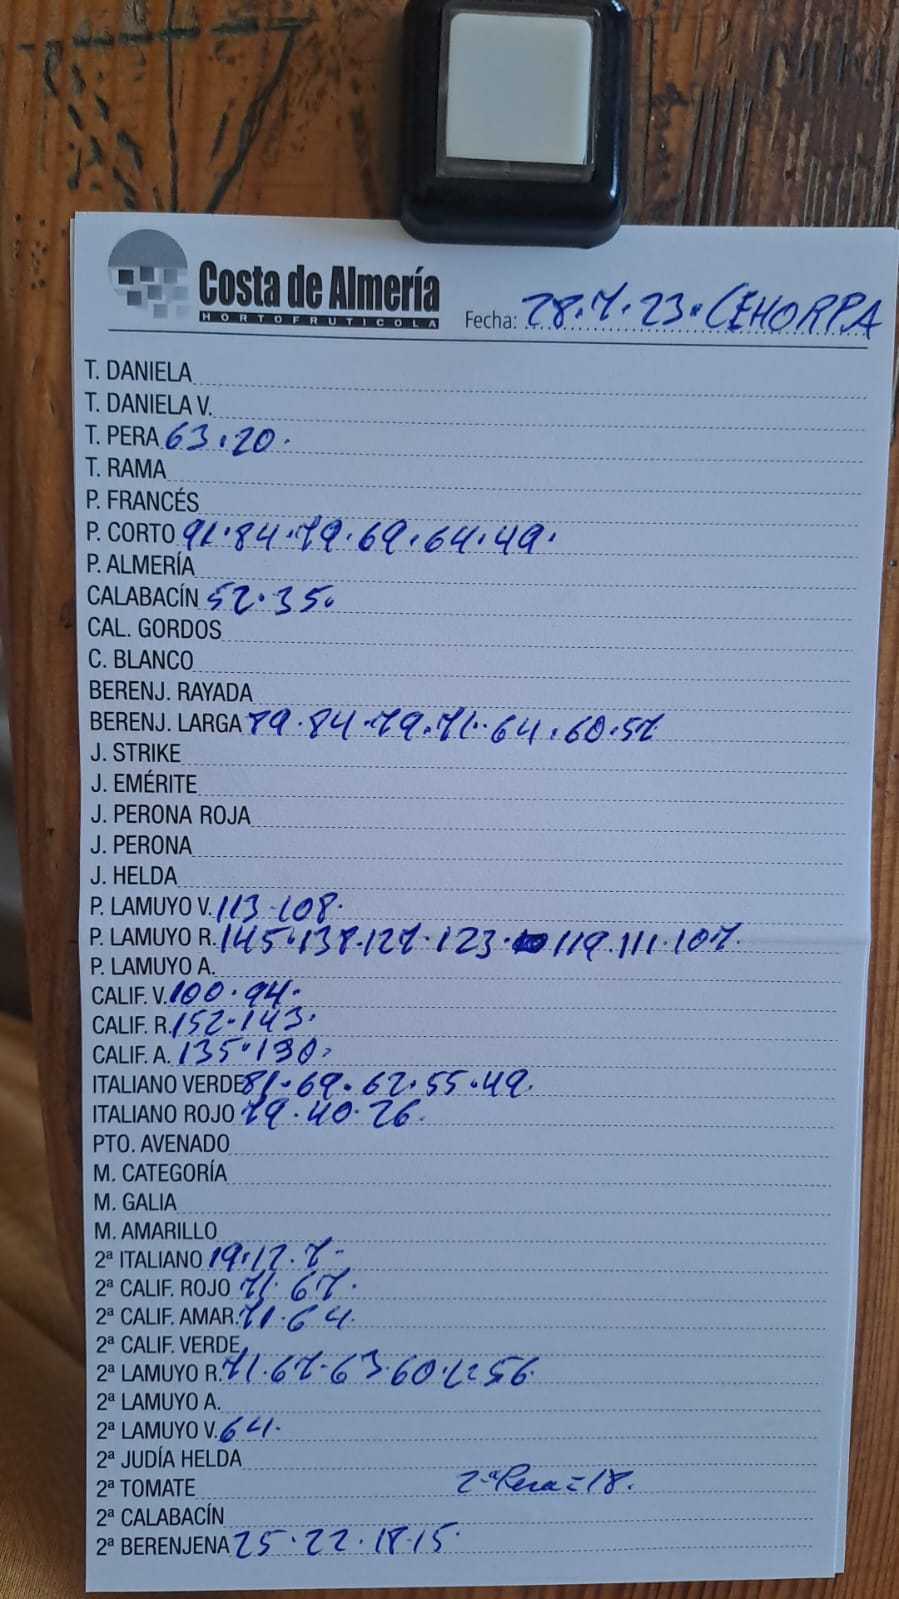 Costa de Almería
HORTOFRUTICOLA
Fecha: 28.7.23. CEHORPA
T. DANIELA
T. DANIELA V.
T. PERA 63.20.
T. RAMA
P. FRANCÉS
P. CORTO 91.84.79.69.64.49.
P. ALMERÍA
CALABACÍN 52.35.
CAL. GORDOS
C. BLANCO
BERENJ. RAYADA
BERENJ. LARGA 84.79.71.64.60.57
J. STRIKE
J. EMÉRITE
J. PERONA ROJA
J. PERONA
J. HELDA
P. LAMUYO V. 113.108.
P. LAMUYO R. 145.138.127.123.119.111.107.
P. LAMUYO A.
CALIF. V. 100.94.
CALIF. R. 152.143.
CALIF. A. 135.130.
ITALIANO VERDE 81.69.62.55.49.
ITALIANO ROJO 79.40.26.
PTO. AVENADO
M. CATEGORÍA
M. GALIA
M. AMARILLO
2ª ITALIANO 19.12.7.
2ª CALIF. ROJO 71.67.
2ª CALIF. AMAR. 71.64.
2ª CALIF. VERDE
2ª LAMUYO R. 71.67.63.60.56.
2ª LAMUYO A.
2ª LAMUYO V. 64.
2ª JUDÍA HELDA
2ª TOMATE 2ª Pera=18.
2ª CALABACÍN
2ª BERENJENA 25.22.18.15.